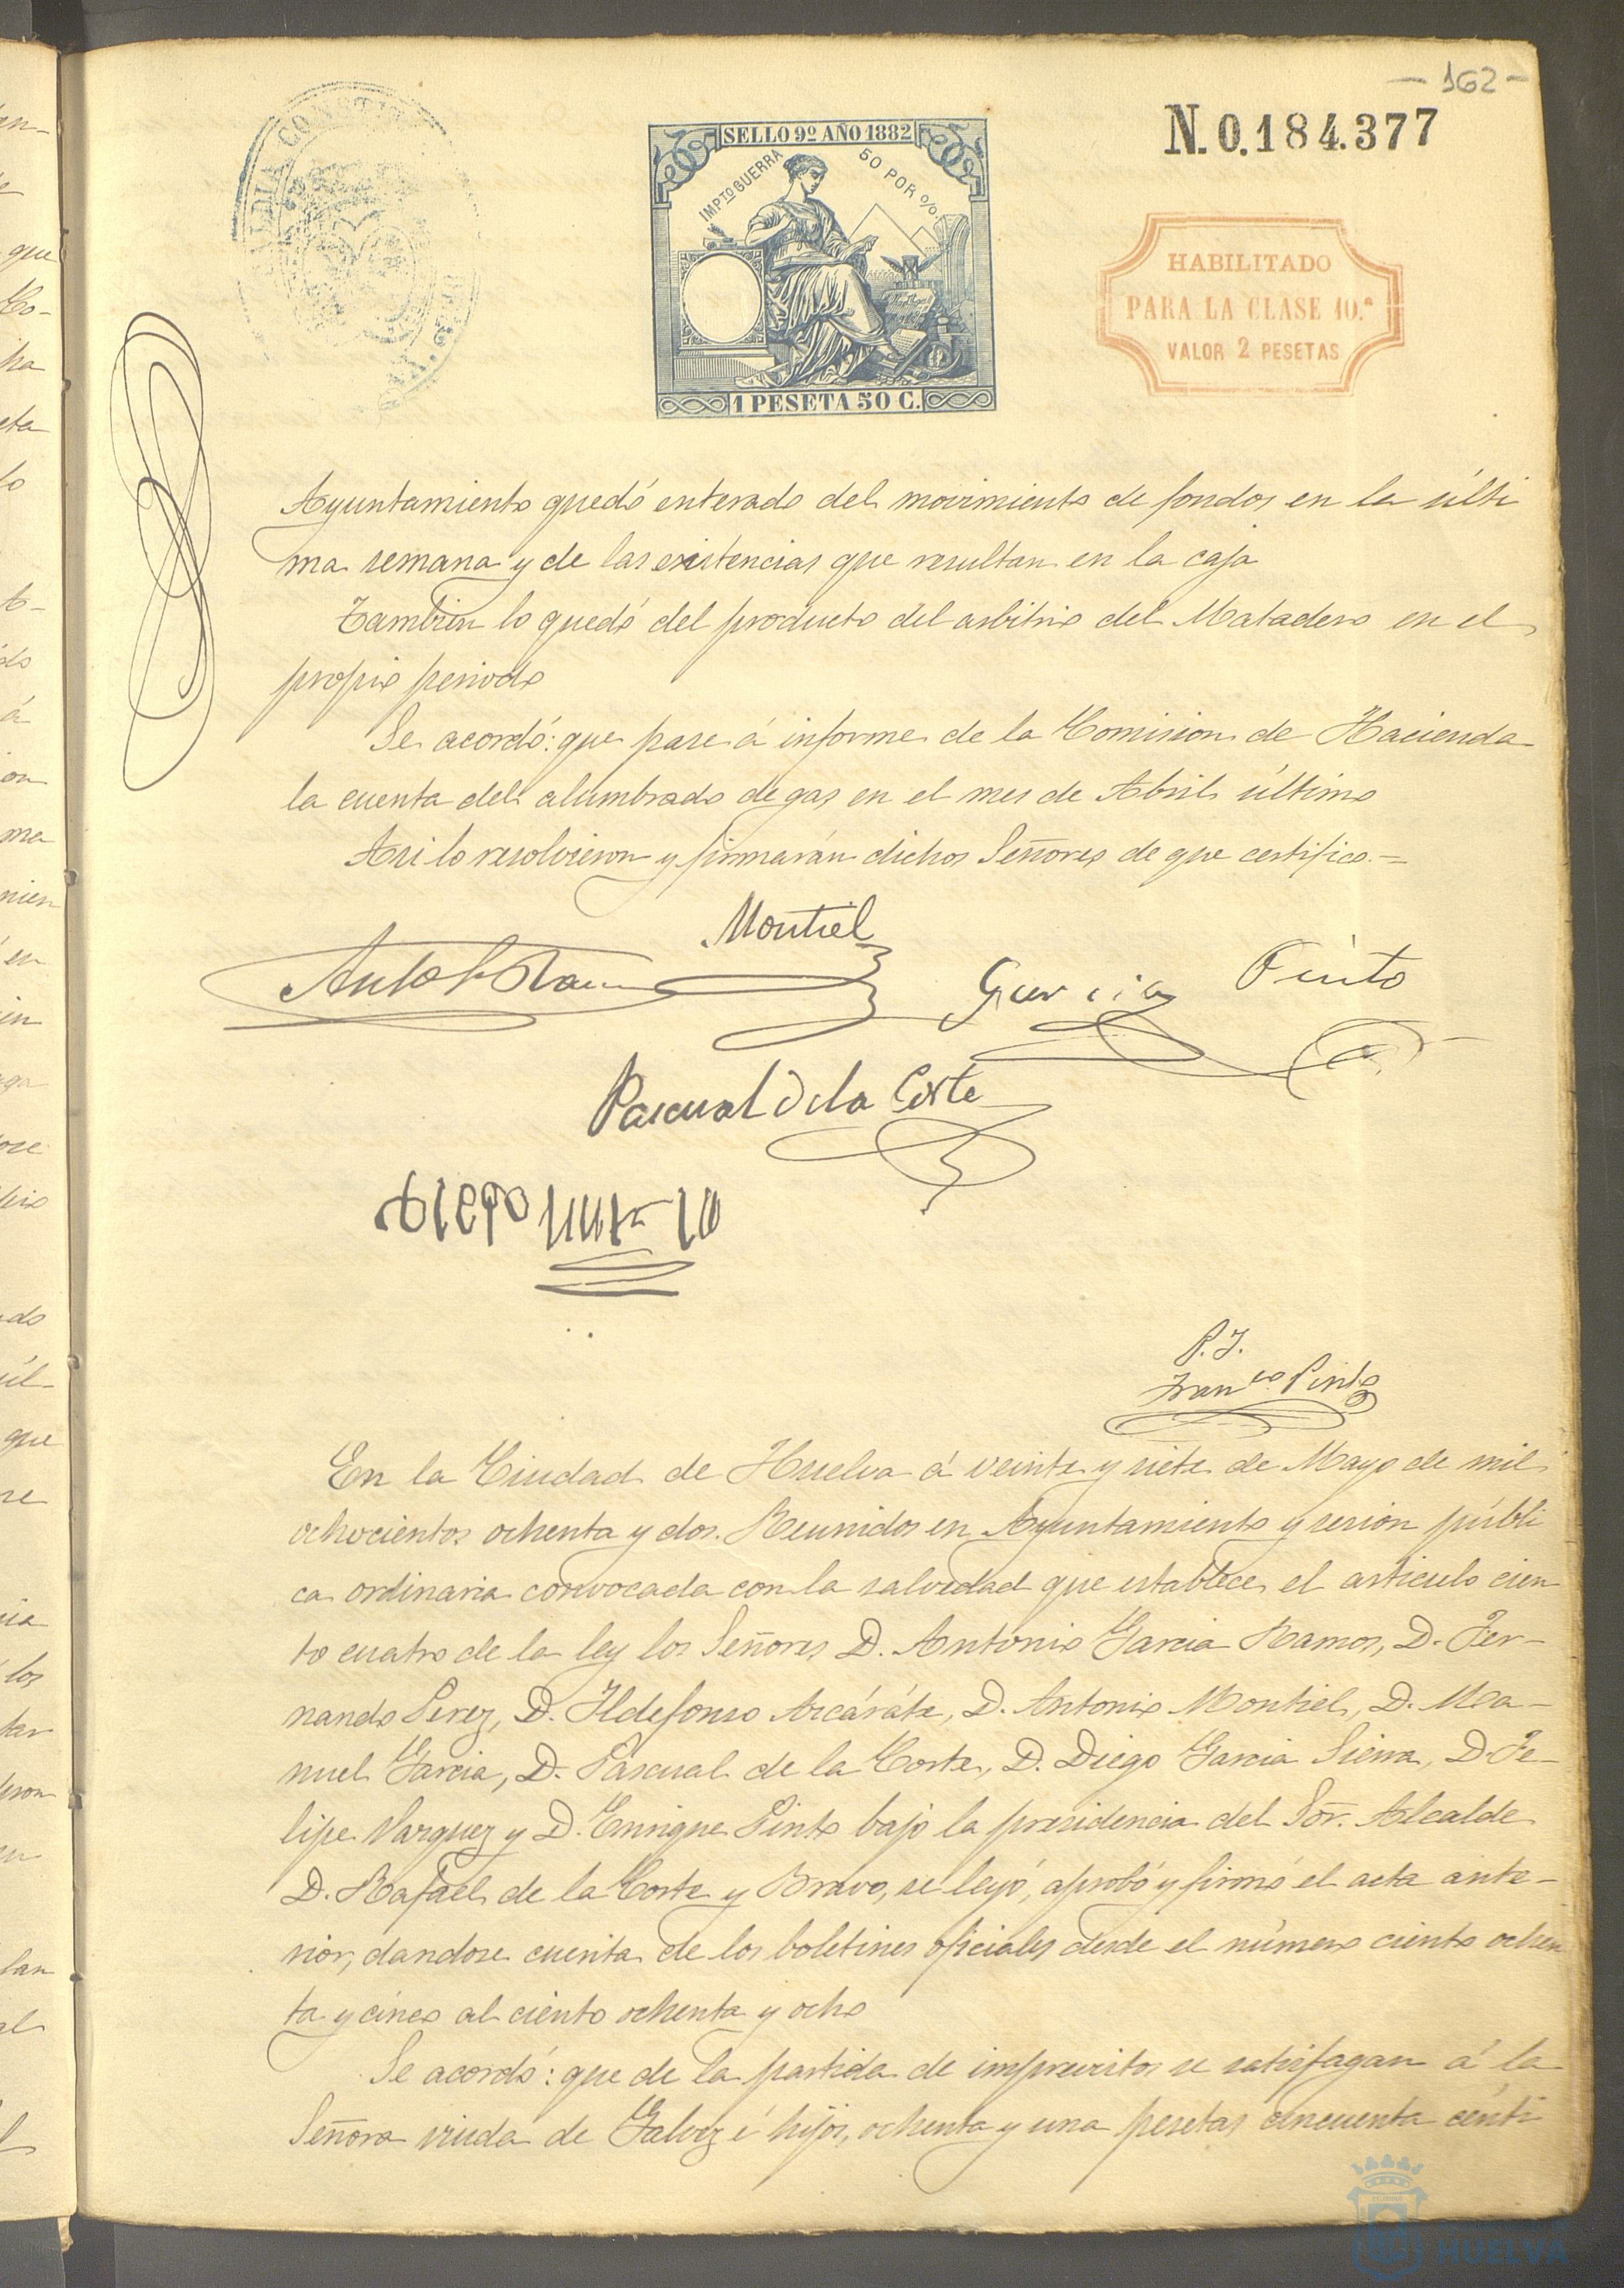 - 162 -
N. 0.184.377
SELLO 9º AÑO 1882
IMPTO GUERRA 50 POR 0/0.
1 PESETA 50 C.
HABILITADO
PARA LA CLASE 10.ª
VALOR 2 PESETAS
Ayuntamiento quedó enterado del movimiento de fondos en la últi
ma semana y de las existencias que resultan en la caja
Tambien lo quedó del producto del arbitrio del Matadero en el
propio periodo
Se acordó: que pase á informe de la Comision de Hacienda
la cuenta del alumbrado de gas en el mes de Abril último
Asi lo resolvieron y firmarán dichos Señores de que certifico.=
Montiel
Garcia Pinto
Pascual de la Corte
Diego
P. I.
Franco. Pinto
En la Ciudad de Huelva á veinte y siete de Mayo de mil
ochocientos ochenta y dos. Reunidos en Ayuntamiento y sesion públi
ca ordinaria convocada con la salvedad que establece el articulo cien
to cuatro de la ley los Señores D. Antonio Garcia Ramos, D. Fer-
nando Perez, D. Ildefonso Arcárate, D. Antonio Montiel, D. Ma-
nuel Garcia, D. Pascual de la Corte, D. Diego Garcia Sierra, D. Fe-
lipe Vazquez y D. Enrique Pinto bajo la presidencia del Sor. Alcalde
D. Rafael de la Corte y Bravo, se leyó, aprobó y firmó el acta ante-
rior, dandose cuenta de los boletines oficiales desde el número ciento ochen
ta y cinco al ciento ochenta y ocho
Se acordó: que de la partida de imprevistos se satisfagan á la
Señora viuda de Galvez é hijos, ochenta y una pesetas cincuenta cénti
HUELVA